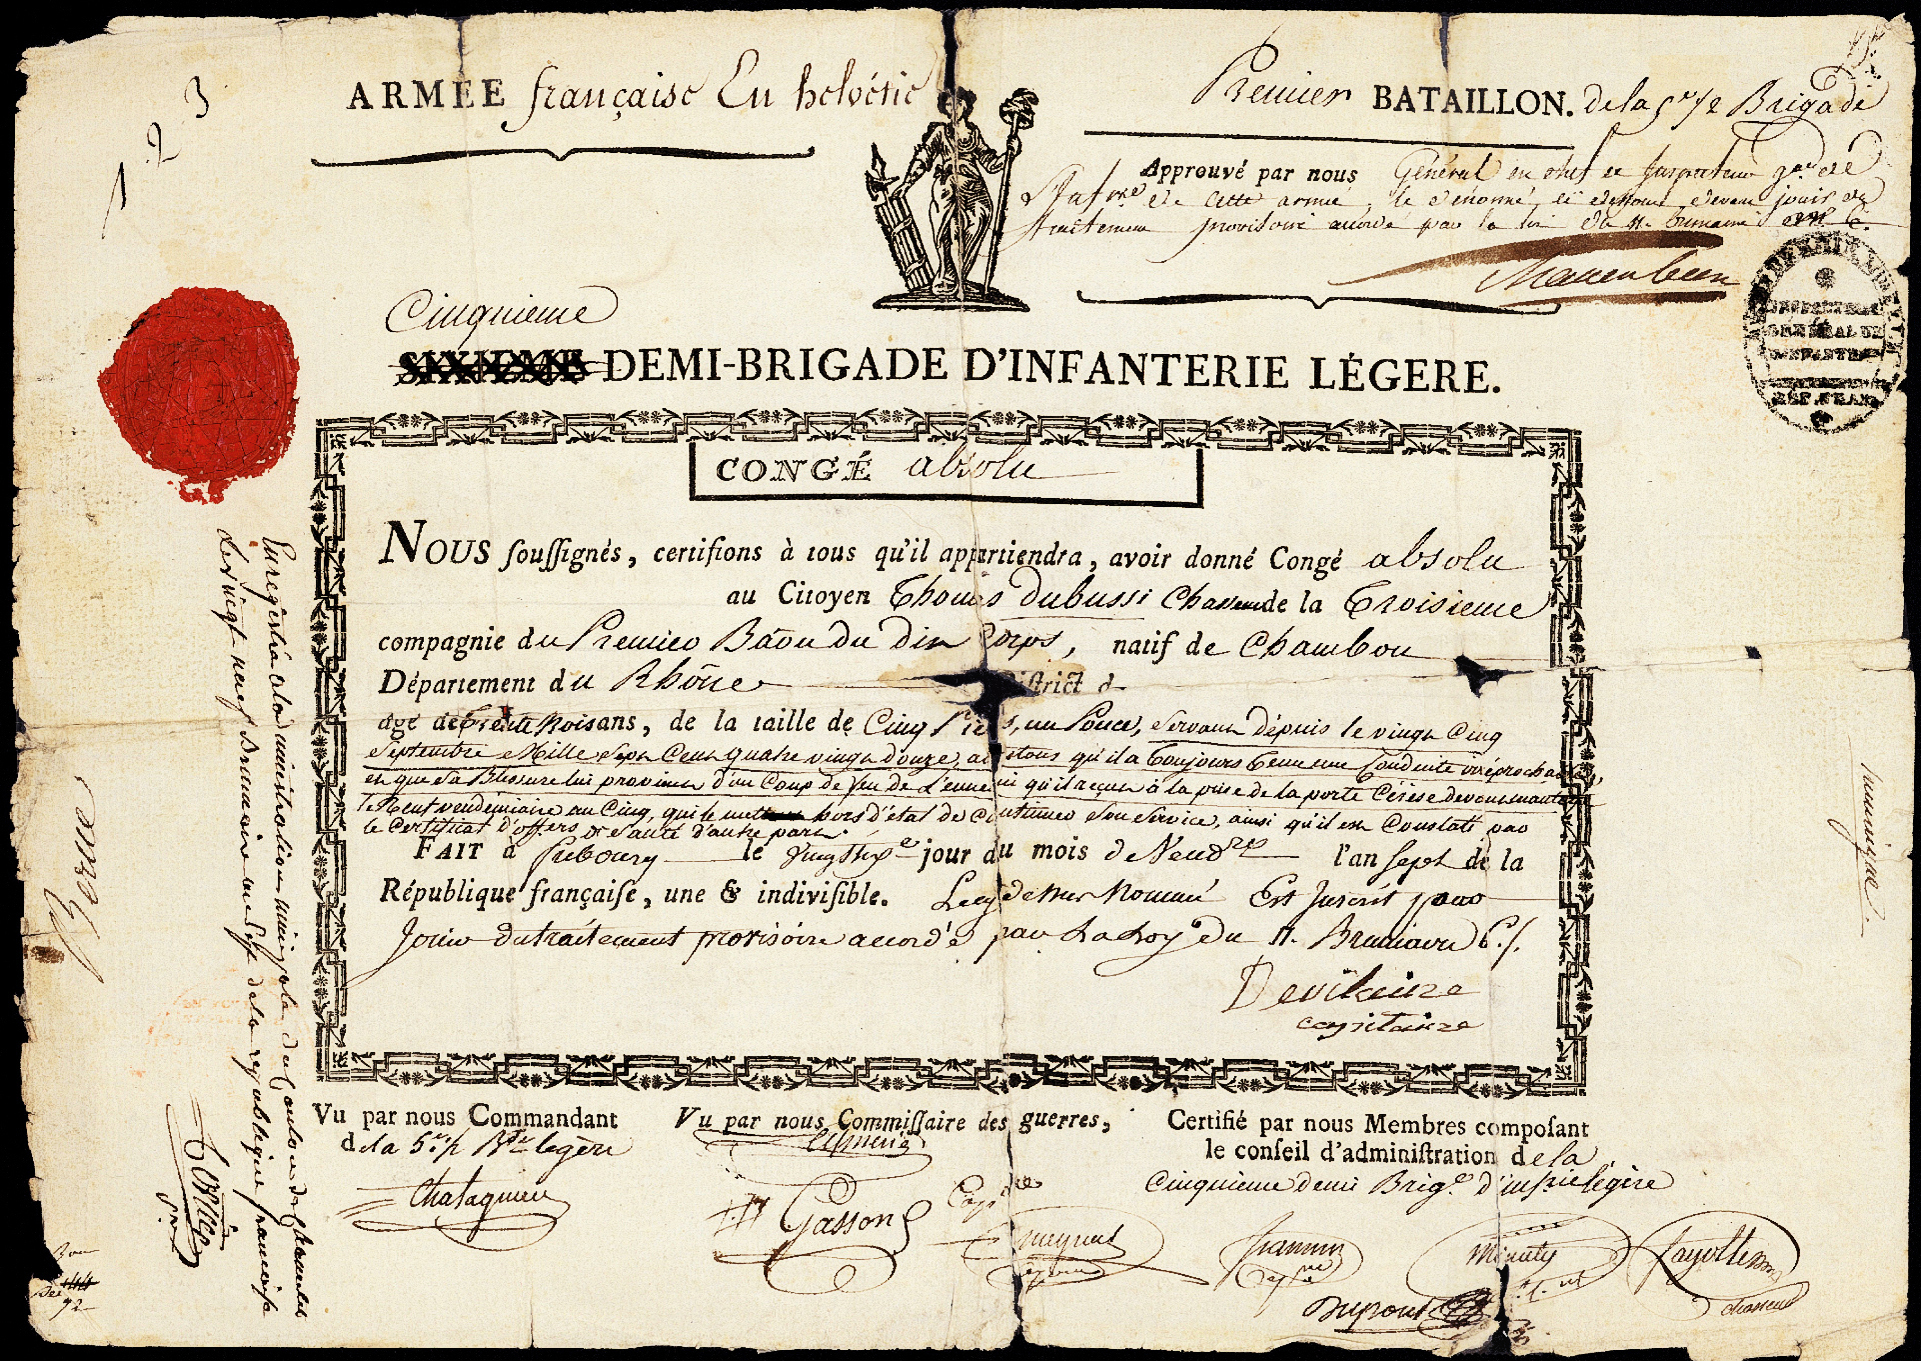 1 2 3
ARMÉE française En helvétie
Premier BATAILLON. de la 5e 1/2 Brigade
Approuvé par nous Général en chef et Inspecteur gal de
L'Infrie de cette armée, le dénommé ci dessous devant jouir du
traitement provisoire accordé par la loi du 11. brumaire
INSPECTEUR
GÉNÉRAL DE
INFANTERIE
RÉP. FRAN
Cinquieme
SIXIEME DEMI-BRIGADE D'INFANTERIE LÉGERE.
CONGÉ absolu
NOUS souſſignés, certifions à tous qu'il appartiendra, avoir donné Congé absolu
au Citoyen Thomas Dubussi Chasseur de la Troisieme
compagnie du Premier Baon du din Corps, natif de Chambon
Département du Rhône District d
âgé de Trente trois ans, de la taille de Cinq Pieds, un Pouce, Servant dépuis le vingt Cinq
Septembre Mille Sept Cent quatre vingt douze, attestons qu'il a Toujours tenu une Conduite irréprochable,
et que sa Blessure lui provient d'un Coup de feu de L'ennemi qu'il a reçu à la prise de la porte Cérèse devant mantoue
le Neuf vendémiaire an Cinq, qui le met hors d'état de Continuer Son Service, ainsi qu'il est Constaté par
le Certificat d'offers de Santé d'autre part.
FAIT à fribourg le Vingt Six e jour du mois de Vendre l'an Sept de la
République françaiſe, une & indiviſible. Le cy dessus Nommé Est Inscrit pour
Jouir du traitement provisoire accordé par La Loy du 11. Brumaire
Devilaine
capitaine
Vu par nous Commandant
de la 5e 1/2 Bde legère
Chataguier
Vu par nous Commiſſaire des guerres,
Gasson
Certifié par nous Membres compoſant
le conſeil d'adminiſtration de la
Cinquieme demi Brige d'infrie légère
Jeannin
Minuty
Fayolle
chasseur
Dupont
Enregistré a l'administration municipale du Canton de
Le vingt neuf Brumaire an Sept de la republique francaise
Bon
144
92